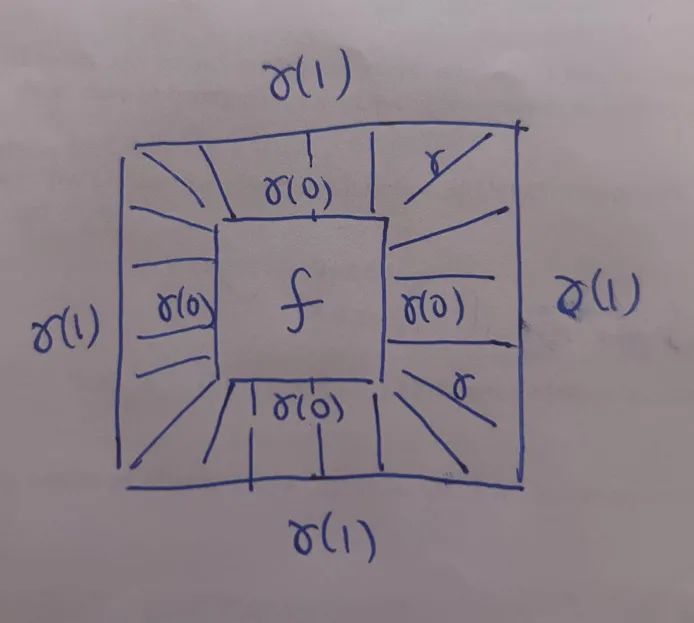 γ(1)
γ
γ(0)
f
γ(1) γ(0) γ(0) γ(1)
γ
γ(0)
γ(1)